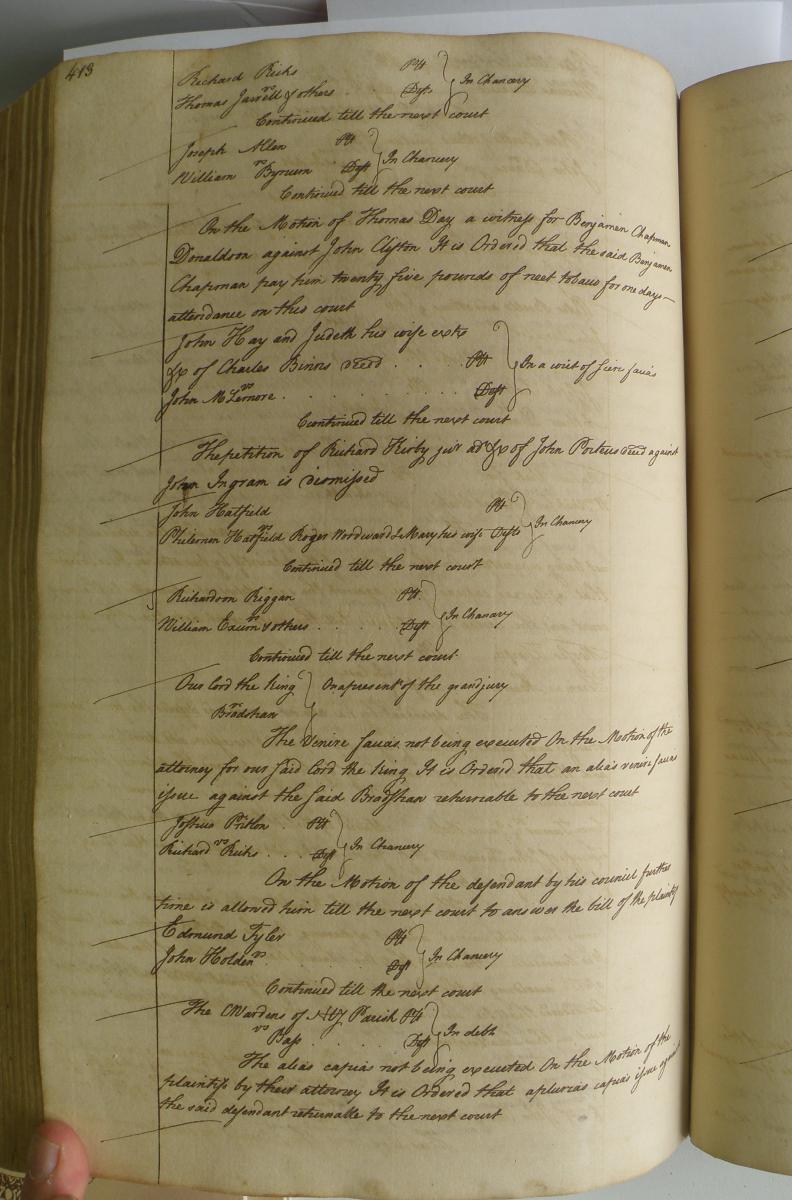 413
Richard Ricks Plt
vs } In Chancery
Thomas Jarrell & others . . Defts
Continued till the next court
Joseph Allen Plt
vs } In Chancery
William Bynum Deft
Continued till the next court
On the Motion of Thomas Day a witness for Benjamin Chapman
Donaldson against John Clifton It is Ordered that the said Benjamin
Chapman pay him twenty five pounds of neet tobacco for one days
attendance on this court
John Hay and Judeth his wife exrs
&c of Charles Binns decd . . . Plt
vs } In a writ of scire facias
John McLemore . . . Deft
Continued till the next court
The petition of Richard Kirby junr admr &c of John Porteus decd against
John Ingram is dismissed
John Hatfield Plt
vs } In Chancery
Philemon Hatfield Roger Woodward & Mary his wife Defts
Continued till the next court
Richardson Riggan Plt
vs } In Chancery
William Exum & others . . . Deft
Continued till the next court
Our Lord the King } On a presentt of the grand jury
vs
Bradshaw
The venire facias not being executed On the Motion of the
attorney for our said Lord the King It is Ordered that an alias venire facias
issue against the said Bradshaw returnable to the next court
Joshua Plt
vs } In Chancery
Richard Ricks . . . Deft
On the Motion of the defendant by his councel further
time is allowed him till the next court to answer the bill of the plaintif
Edmund Tyler Plt
vs } In Chancery
John Holden . . . Deft
Continued till the next court
The CWardens of Parish Plt
vs } In debt
Bass . . . Deft
The alias capias not being executed On the Motion of the
plaintifs by their attorney It is Ordered that a plurias capias issue against
the said defendant returnable to the next court